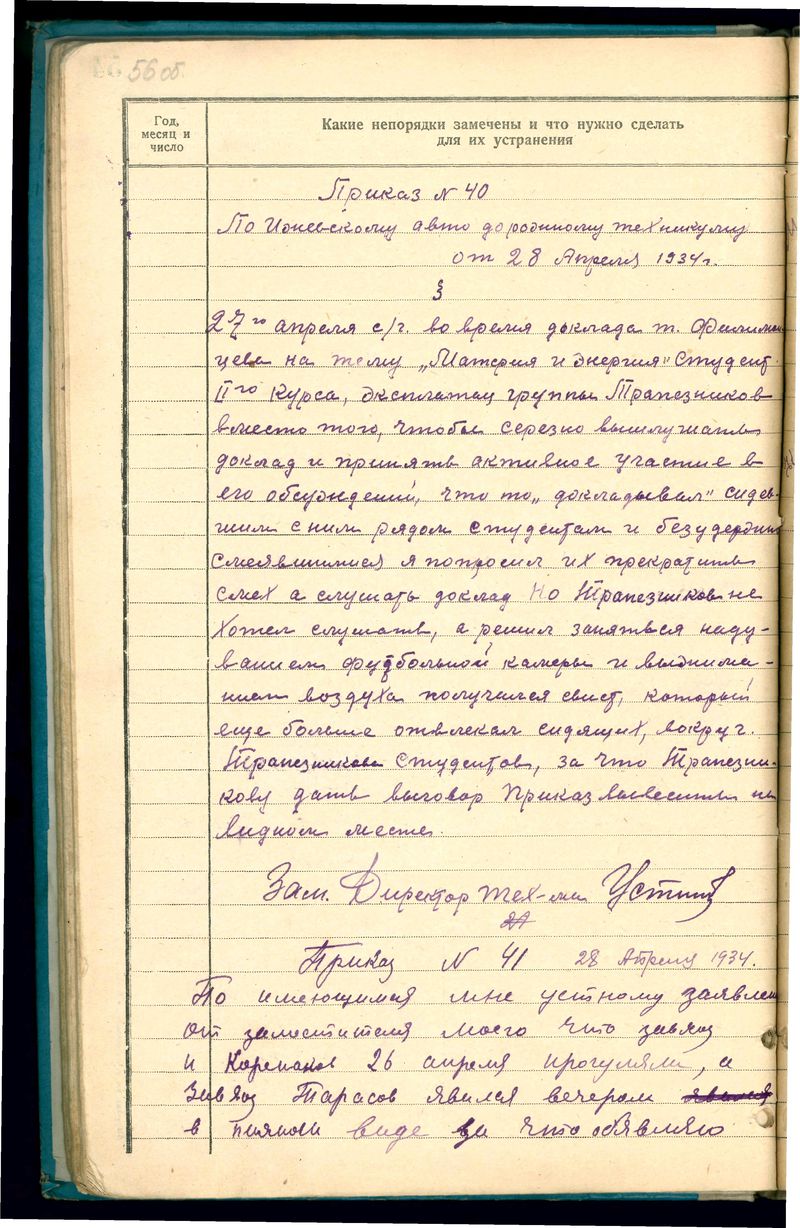 56 об.
Год,
месяц и
число
Какие непорядки замечены и что нужно сделать
для их устранения
Приказ N 40
По Ижевскому авто дорожному техникуму
от 28 Апреля 1934 г.
§
27го апреля с/г. во время доклада т.
цева на тему „Материя и энергия" студент
IIго курса, группы Трапезников
вместо того, чтобы серезно выслушать
доклад и принять активное участие в
его обсуждений, что то „докладывал" сидев-
шим с ним рядом студентам и безудержно
смеявшимися я попросил их прекратить
смех а слушать доклад Но Трапезников не
хотел слушать, а решил заняться наду-
ванием футбольной камеры и выжима-
нием воздуха получился свист, который
еще больше отвлекал сидящих, вокруг
Трапезникова студентов, за что Трапезни-
кову дать выговор Приказ вывесить на
видном месте.
Зам. Директор тех-ма
Приказ N 41 28 Апреля 1934.
По имеющимся мне устному заявлен
от заместителя моего что завхоз
и 26 апреля прогуляли, а
Завхоз Тарасов явился вечером
в пияном виде за что обявляю